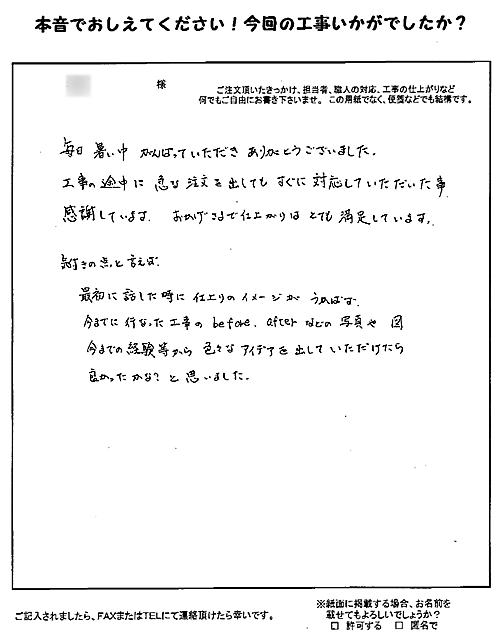 本音でおしえてください！今回の工事いかがでしたか？
様
ご注文頂いたきっかけ、担当者、職人の対応、工事の仕上がりなど
何でもご自由にお書き下さいませ。この用紙でなく、便箋などでも結構です。
毎日 暑い中 がんばっていただき ありがとうございました。
工事の途中に 急な注文を出しても すぐに 対応していただいた事
感謝しています。 おかげさまで仕上がりは とても 満足しています。
気付きの点と言えば
最初に話した時に 仕上りのイメージが うかばず、
今までに行なった工事の before, afterなどの 写真や 図
今までの経験等から 色々なアイデアを出していただけたら
良かったかな？と思いました。
ご記入されましたら、FAXまたはTELにて連絡頂けたら幸いです。
※紙面に掲載する場合、お名前を
載せてもよろしいでしょうか？
□ 許可する □ 匿名で